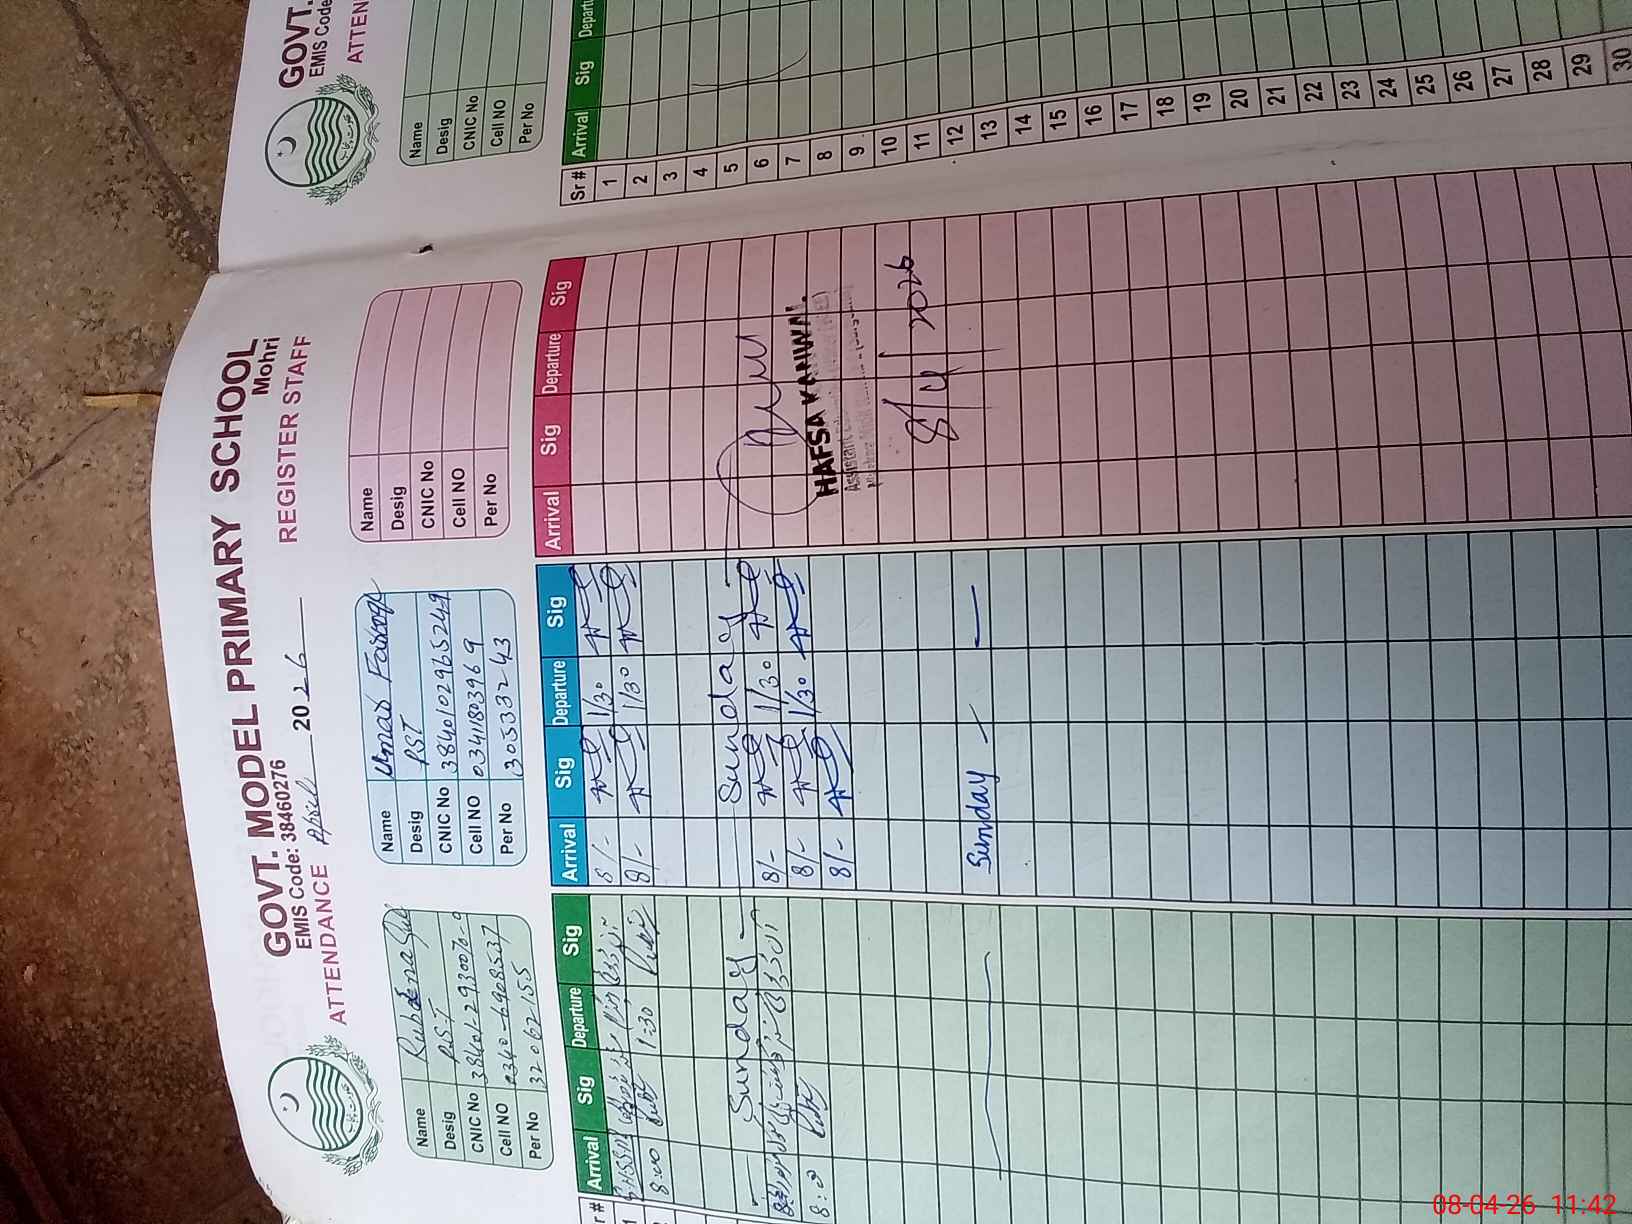 GOVT. MODEL PRIMARY SCHOOL
Mohri
EMIS Code: 38460276
ATTENDANCE April 2026 REGISTER STAFF
Name Rubeena
Desig PST
CNIC No
Cell NO 0340-6908537
Per No 32062155
Name Umar Farooq
Desig PST
CNIC No 3840102965249
Cell NO 03411803969
Per No 30533243
Name
Desig
CNIC No
Cell NO
Per No
Arrival Sig Departure Sig Arrival Sig Departure Sig Arrival Sig Departure Sig
1 8/- 1/30
8:00 1:30 8/- 1/30
Sunday Sunday
8/- 1/30
8/- 1/30
8/-
HAFSA KANWAL
8/4/2026
Sunday
GOVT.
EMIS Code
ATTEN
Name
Desig
CNIC No
Cell NO
Per No
Sr # Arrival Sig
1
2
3
4
5
6
7
8
9
10
11
12
13
14
15
16
17
18
19
20
21
22
23
24
25
26
27
28
29
30
08-04-26 11:42